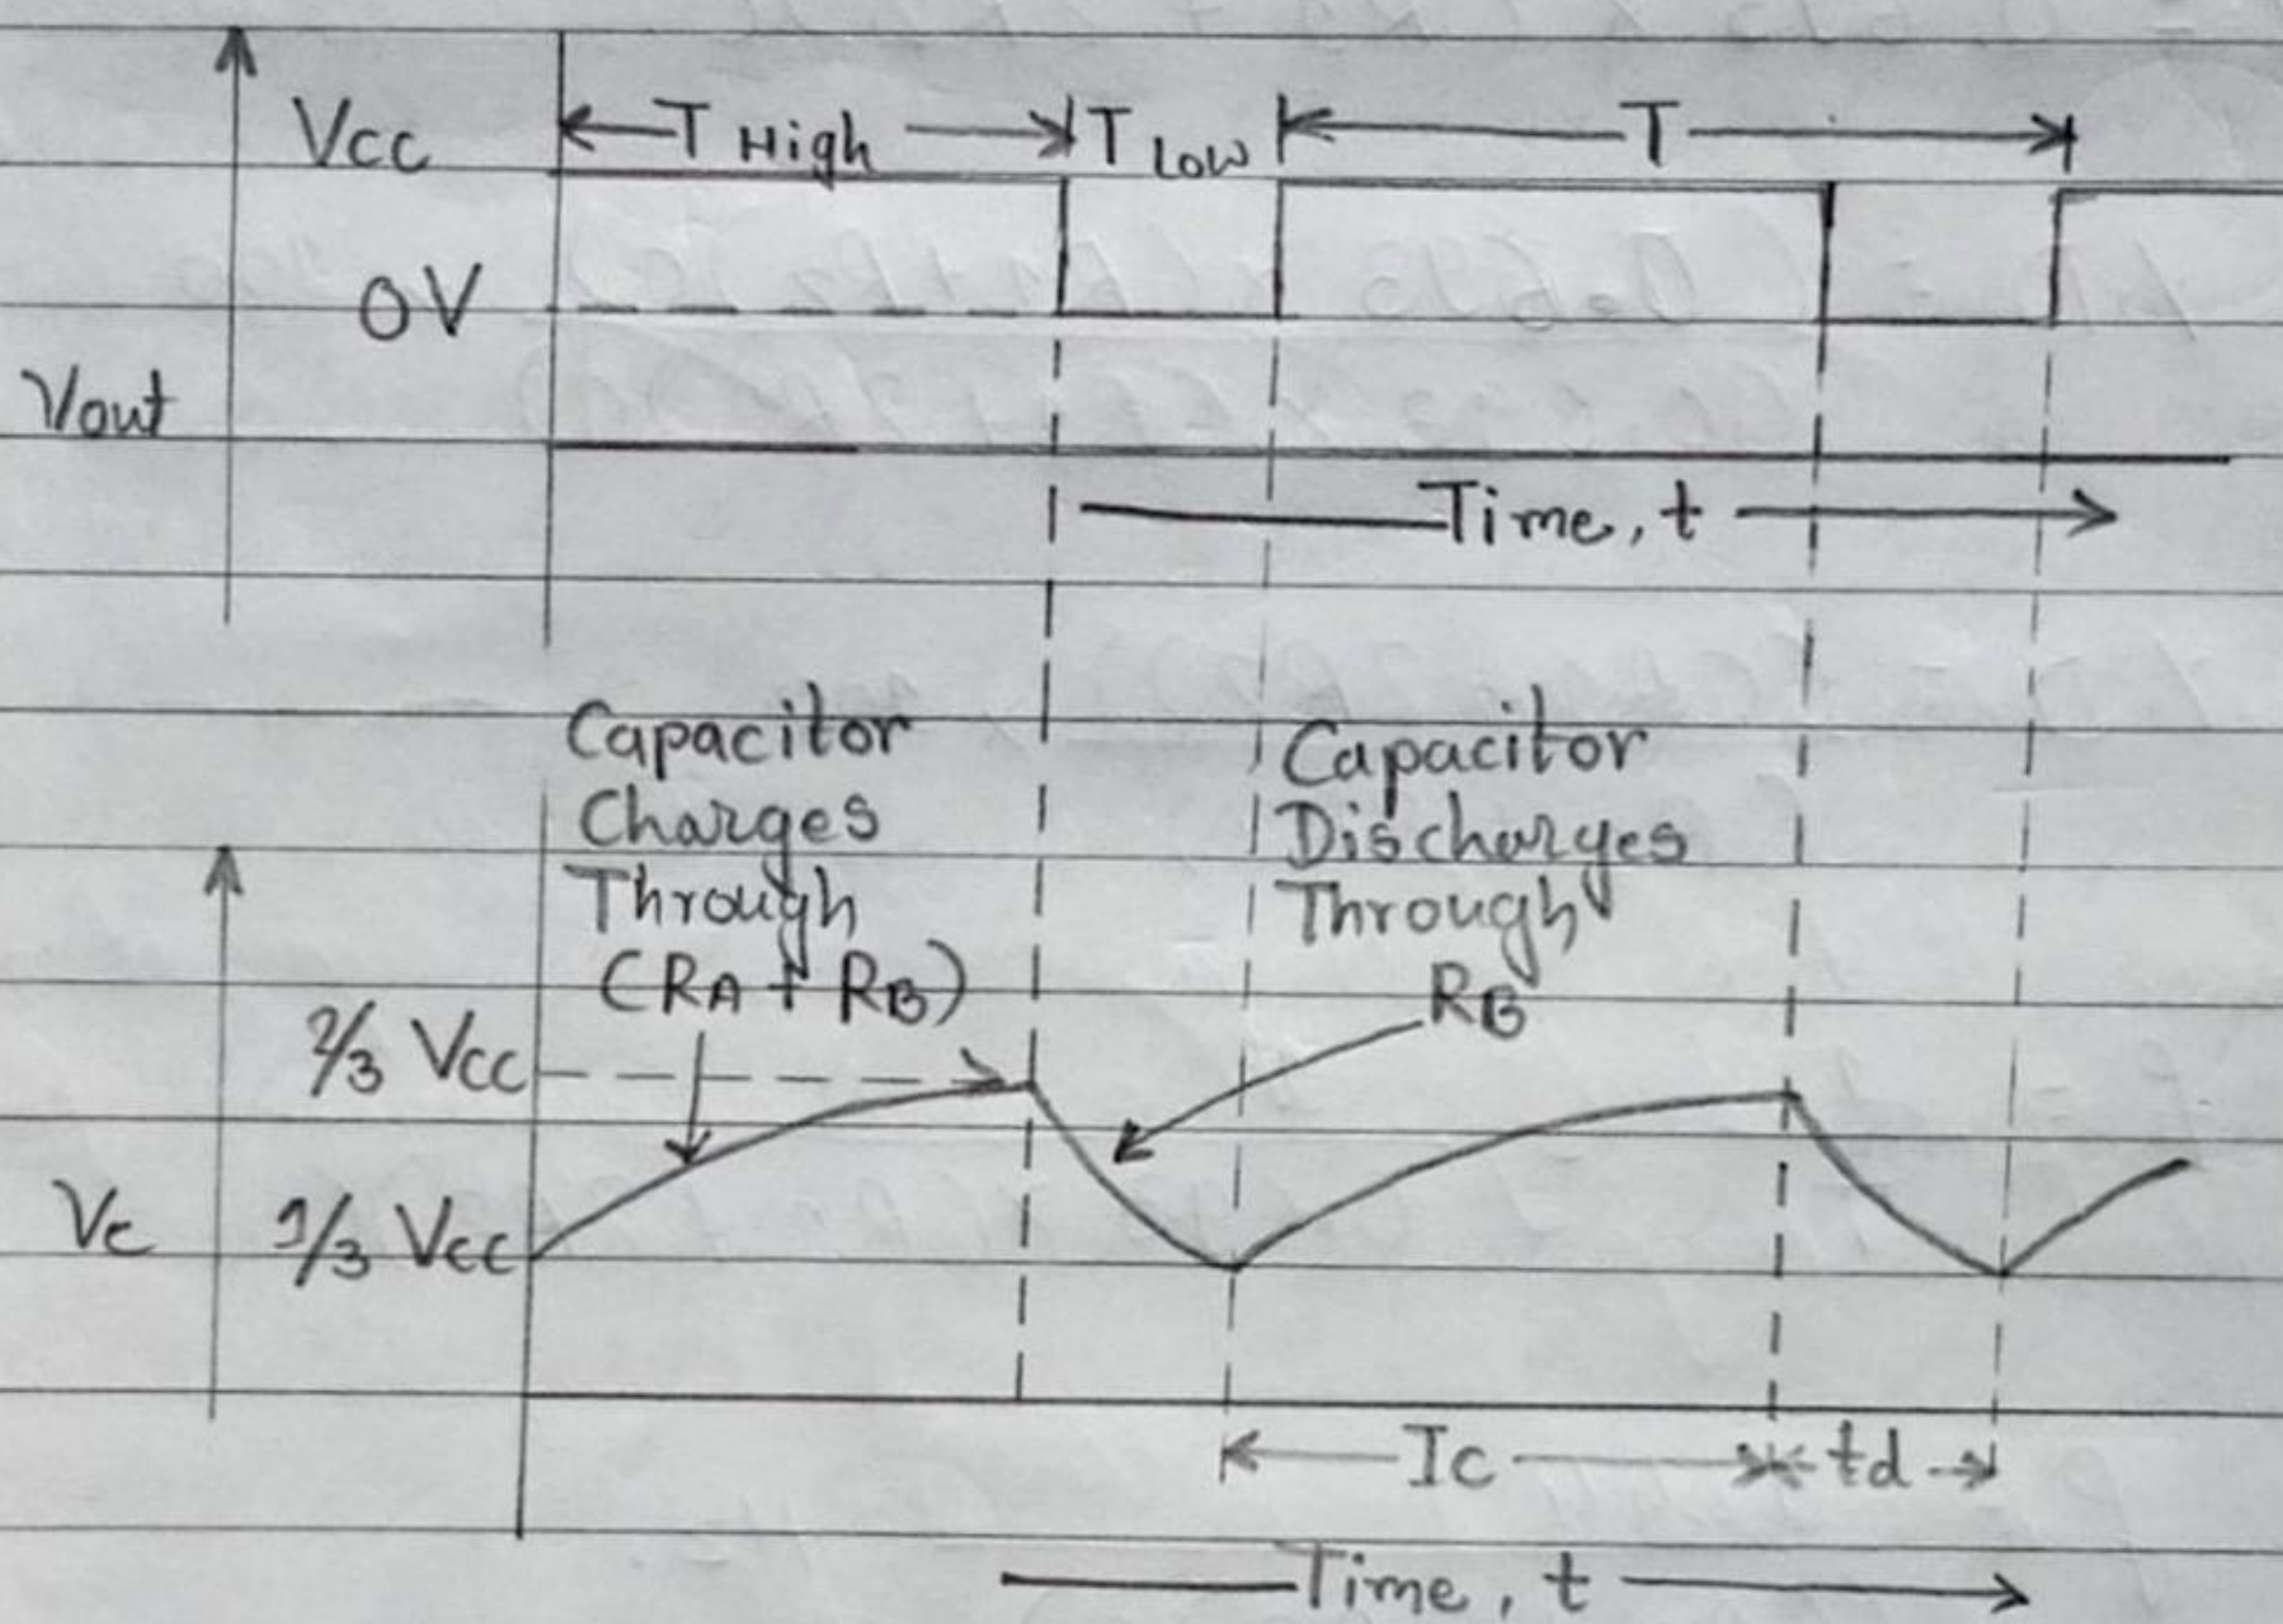 Vcc
T High
T Low
T
0V
Vout
Time, t
Capacitor
Charges
Through
(RA + RB)
Capacitor
Discharges
Through
RB
2/3 Vcc
Vc
1/3 Vcc
Ic
td
Time, t